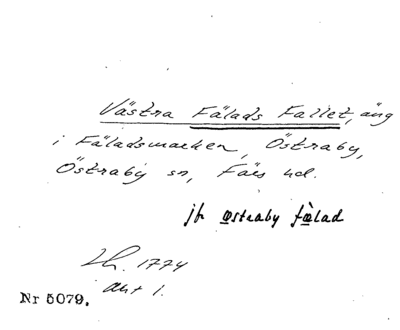 Västra Fälads Fallet, äng
i Fäladsmarken, Östraby,
Östraby sn, Färs hd.
jfr östraby fälad
Lh. 1774
akt 1.
Nr 5079.